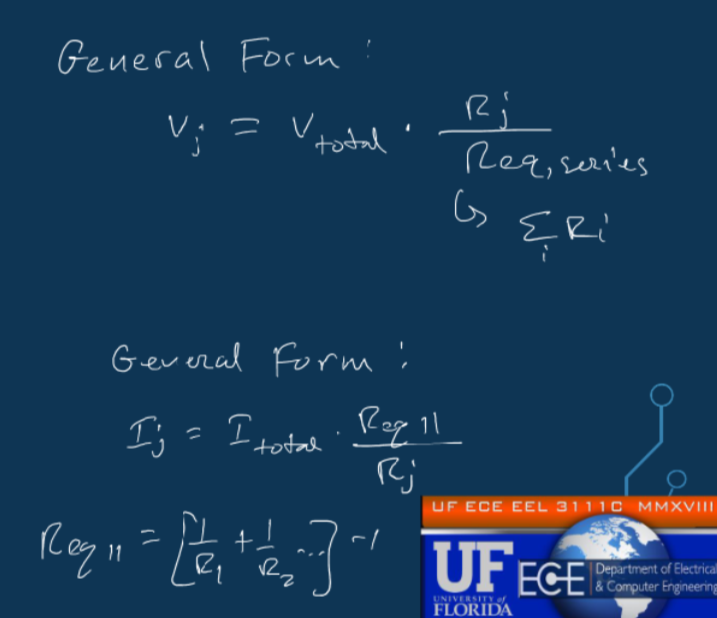 General Form:
Vj = Vtotal · Rj / Req, series
↳ Σi Ri
General Form:
Ij = Itotal · Req || / Rj
Req || = [1/R1 + 1/R2 ...]^-1
UF ECE EEL 3111C MMXVIII
UF ECE
UNIVERSITY of
FLORIDA
Department of Electrical
& Computer Engineering